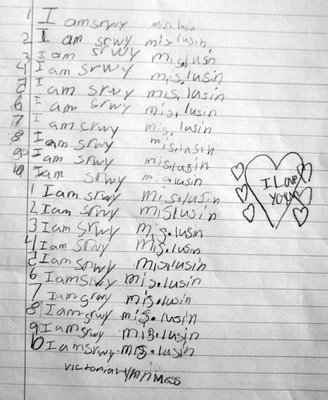 1 I am srwy mis.lusin
2 I am srwy mis.lusin
3 I am srwy mis.lusin
4 I am srwy mis.lusin
5 I am srwy mis.lusin
6 I am srwy mis.lusin
7 I am srwy mis.lusin
8 I am srwy mis.lusin
9 I am srwy mis.lusin
10 I am srwy mis.lusin
1 I am srwy mis.lusin
2 I am srwy mislusin
3 I am srwy mis.lusin
4 I am srwy mis.lusin
5 I am srwy mis.lusin
6 I am srwy mis.lusin
7 I am srwy mis.lusin
8 I am srwy mis.lusin
9 I am srwy mis.lusin
10 I am srwy mis.lusin
victoria
I Love
You